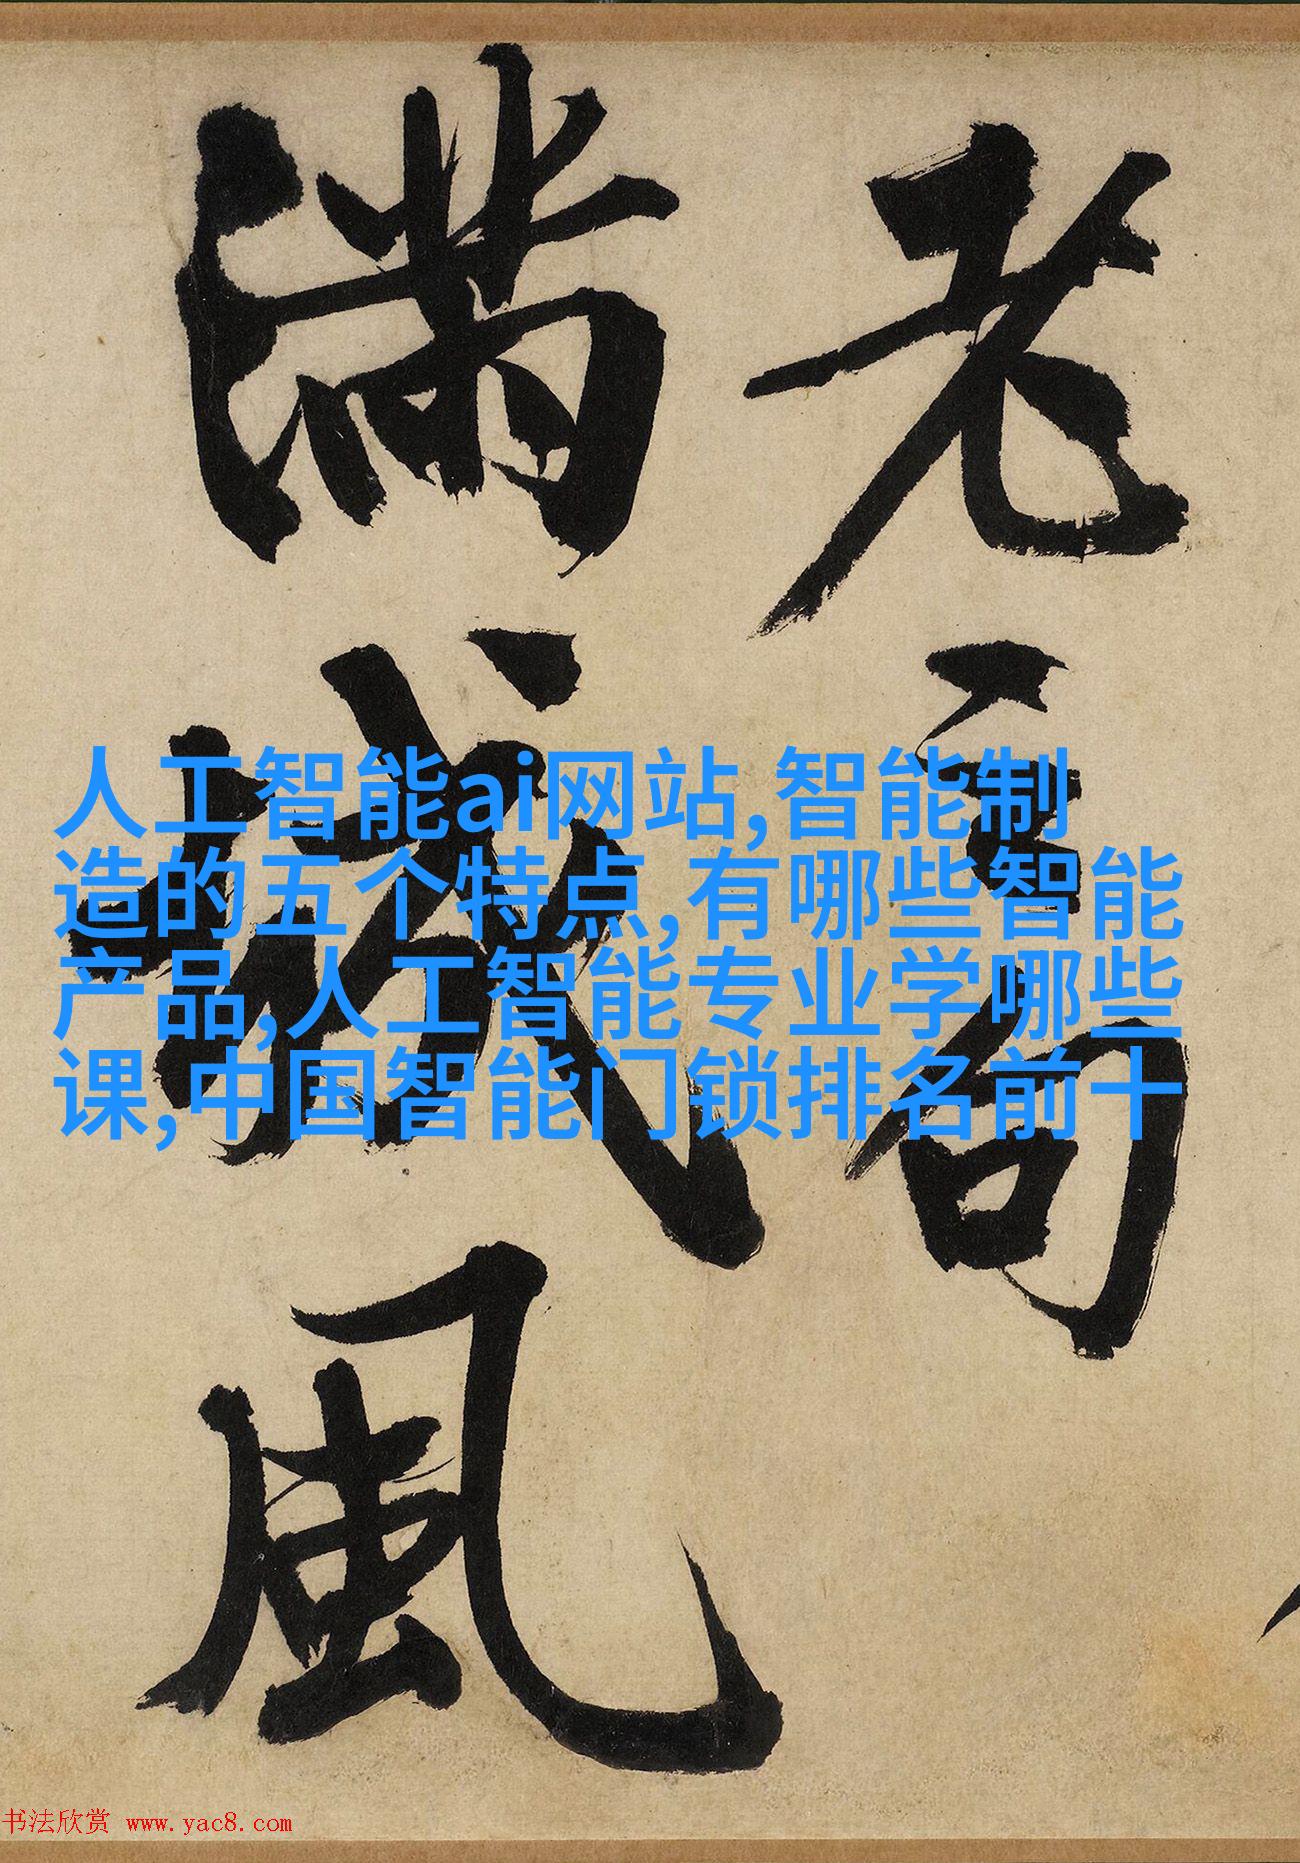 老
句
滿城風
人工智能ai网站,智能制
造的五个特点,有哪些智能
产品,人工智能专业学哪些
课,中国智能门锁排名前十
书法欣赏 www.yac8.com